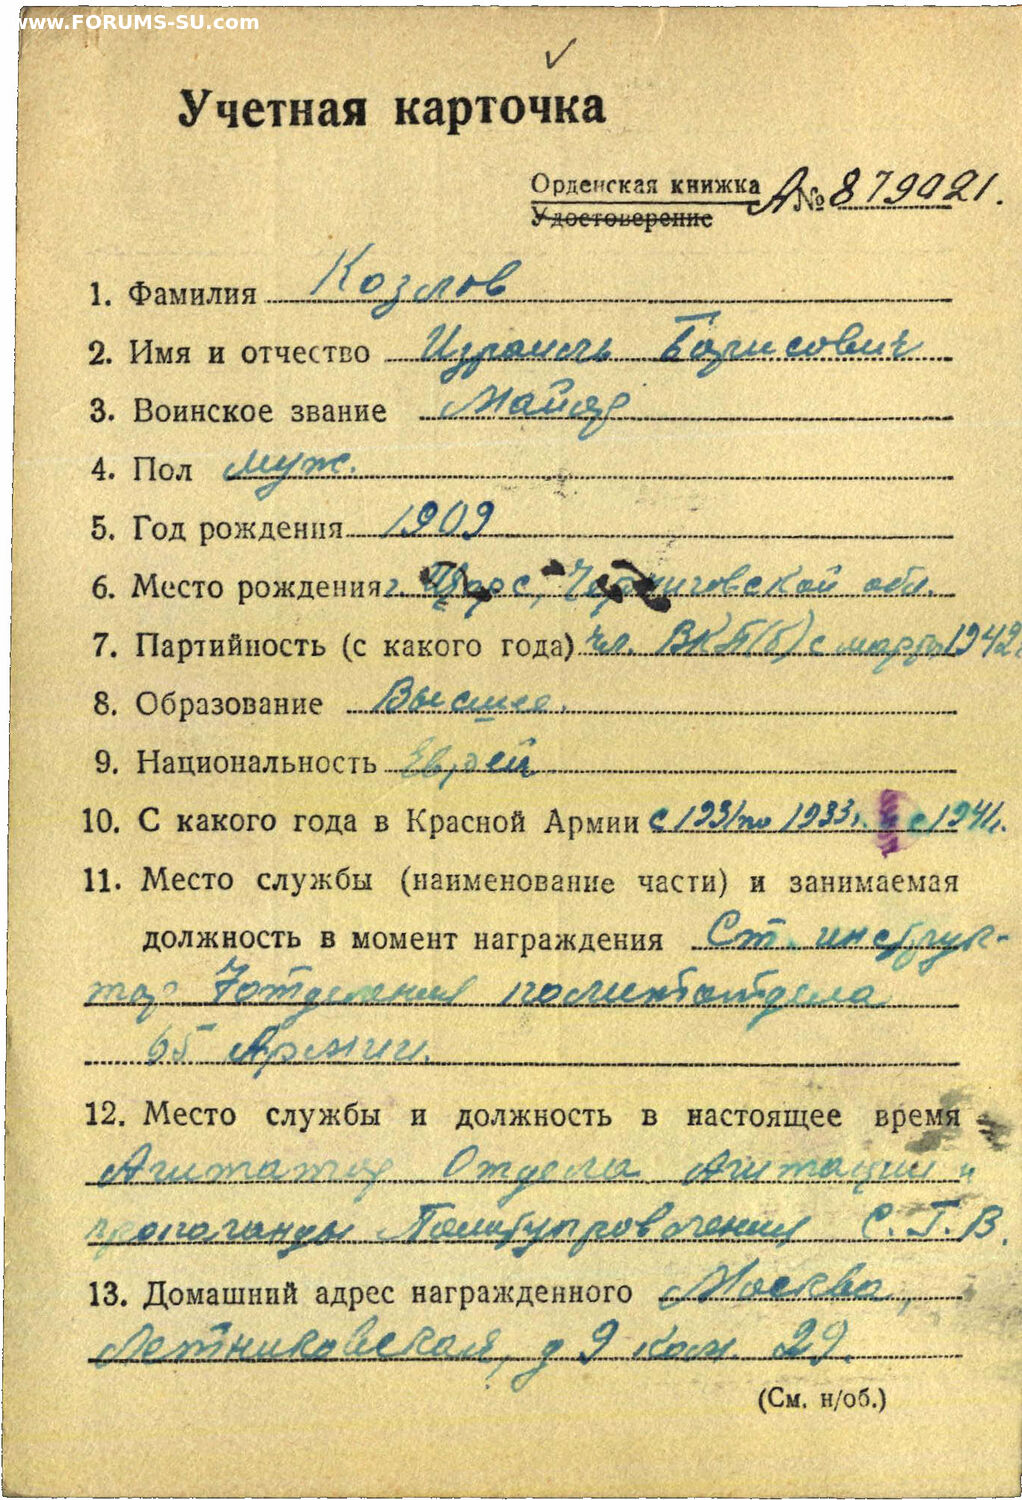 www.FORUMS-SU.com
Учетная карточка
Орденская книжка А№ 879021.
Удостоверение
1. Фамилия Козлов
2. Имя и отчество Израиль Борисович
3. Воинское звание Майор
4. Пол муж.
5. Год рождения 1909
6. Место рождения г. Щорс, Черниговской обл.
7. Партийность (с какого года) чл. ВКП(б) с марта 1942г
8. Образование Высшее.
9. Национальность Еврей
10. С какого года в Красной Армии с 1931 по 1933г. и с 1941г.
11. Место службы (наименование части) и занимаемая
должность в момент награждения Ст. инструк-
тор 7 отделения политотдела
65 Армии.
12. Место службы и должность в настоящее время
Агитатор Отдела Агитации и
пропаганды Политуправления С.Г.В.
13. Домашний адрес награжденного Москва,
Летниковская, д 9 ком. 29.
(См. н/об.)